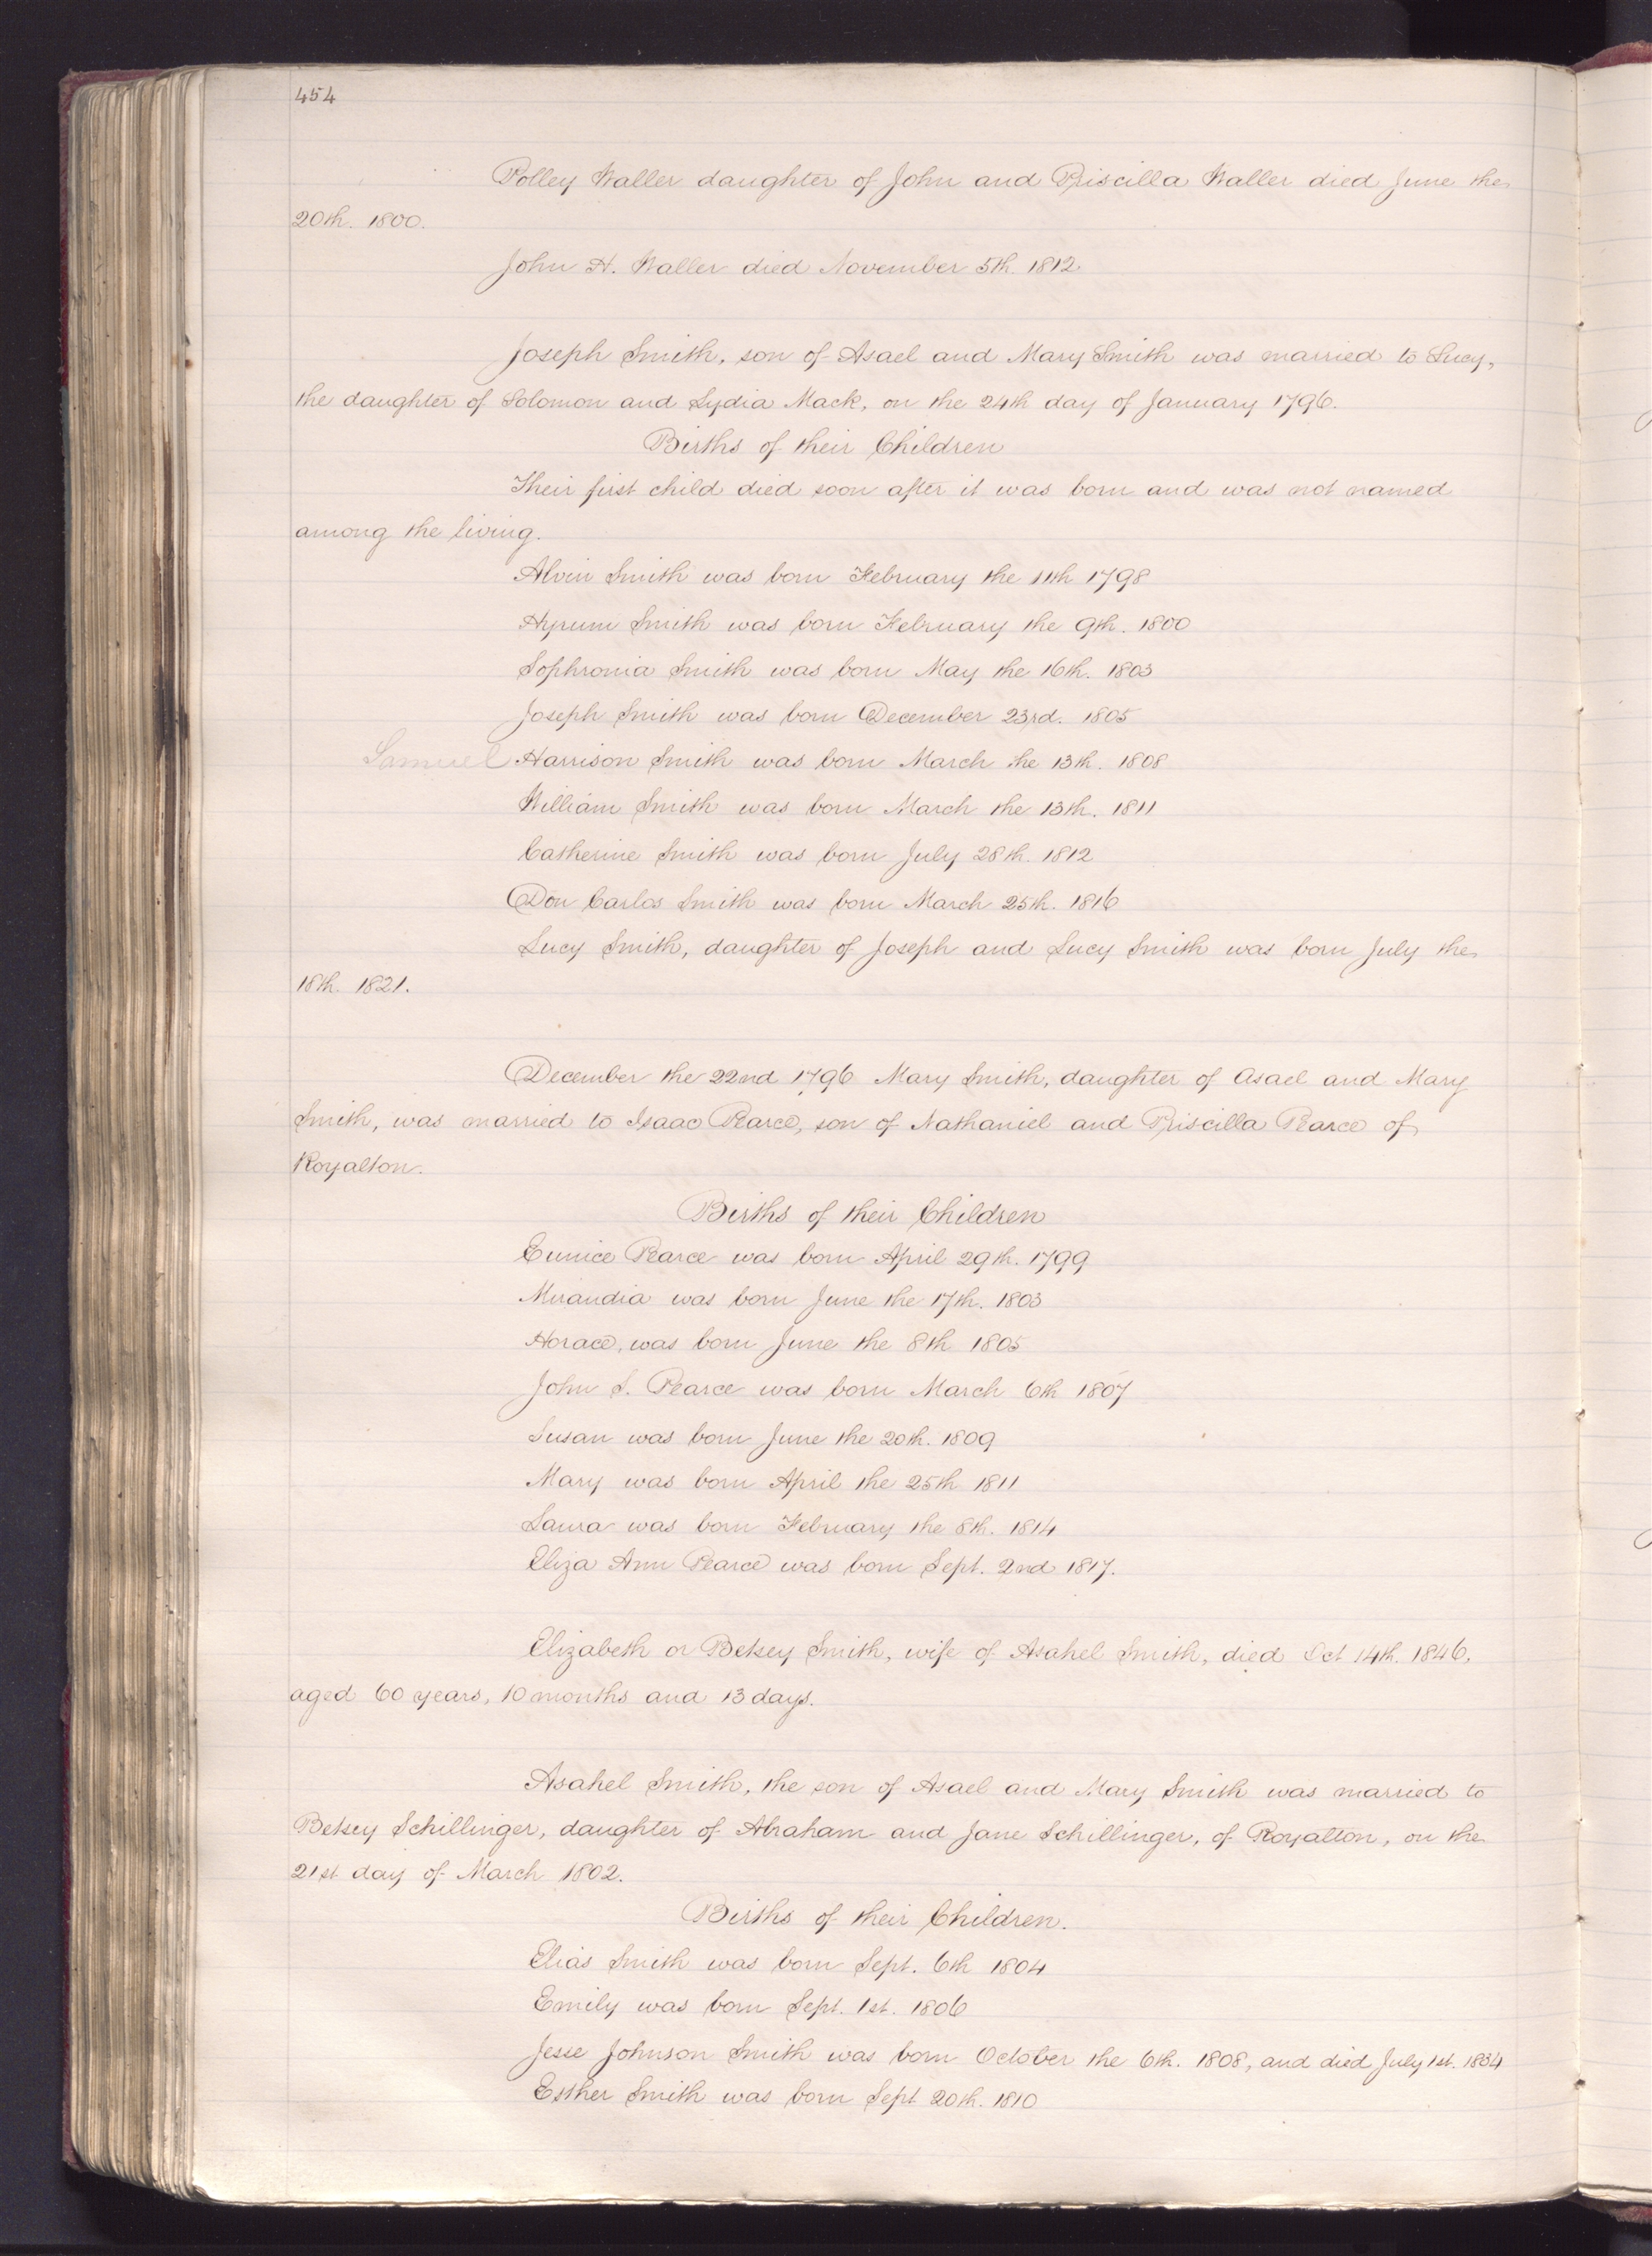 454
Polley Waller daughter of John and Priscilla Waller died June the
20th. 1800.
John H. Waller died November 5th 1812.
Joseph Smith, son of Asael and Mary Smith was married to Lucy,
the daughter of Solomon and Lydia Mack, on the 24th day of January 1796.
Births of their Children
Their first child died soon after it was born and was not named
among the living.
Alvin Smith was born February the 11th 1798
Hyrum Smith was born February the 9th. 1800
Sophronia Smith was born May the 16th. 1803
Joseph Smith was born December 23rd. 1805
Samuel Harrison Smith was born March the 13th. 1808
William Smith was born March the 13th. 1811
Catherine Smith was born July 28th. 1812
Don Carlos Smith was born March 25th. 1816
Lucy Smith, daughter of Joseph and Lucy Smith was born July the
18th. 1821.
December the 22nd 1796 Mary Smith, daughter of Asael and Mary
Smith, was married to Isaac Pearce, son of Nathaniel and Priscilla Pearce of
Royalton.
Births of their Children
Eunice Pearce was born April 29th. 1799
Mirandia was born June the 17th. 1803
Horace, was born June the 8th 1805
John S. Pearce was born March 6th 1807
Susan was born June the 20th. 1809
Mary was born April the 25th 1811
Laura was born February the 8th. 1814
Eliza Ann Pearce was born Sept. 2nd 1817.
Elizabeth or Betsey Smith, wife of Asahel Smith, died Oct 14th. 1846,
aged 60 years, 10 months and 13 days.
Asahel Smith, the son of Asael and Mary Smith was married to
Betsey Schillinger, daughter of Abraham and Jane Schillinger, of Royalton, on the
21st day of March 1802.
Births of their Children.
Elias Smith was born Sept. 6th 1804
Emily was born Sept. 1st. 1806
Jesse Johnson Smith was born October the 6th. 1808, and died July 1st. 1834
Esther Smith was born Sept 20th. 1810